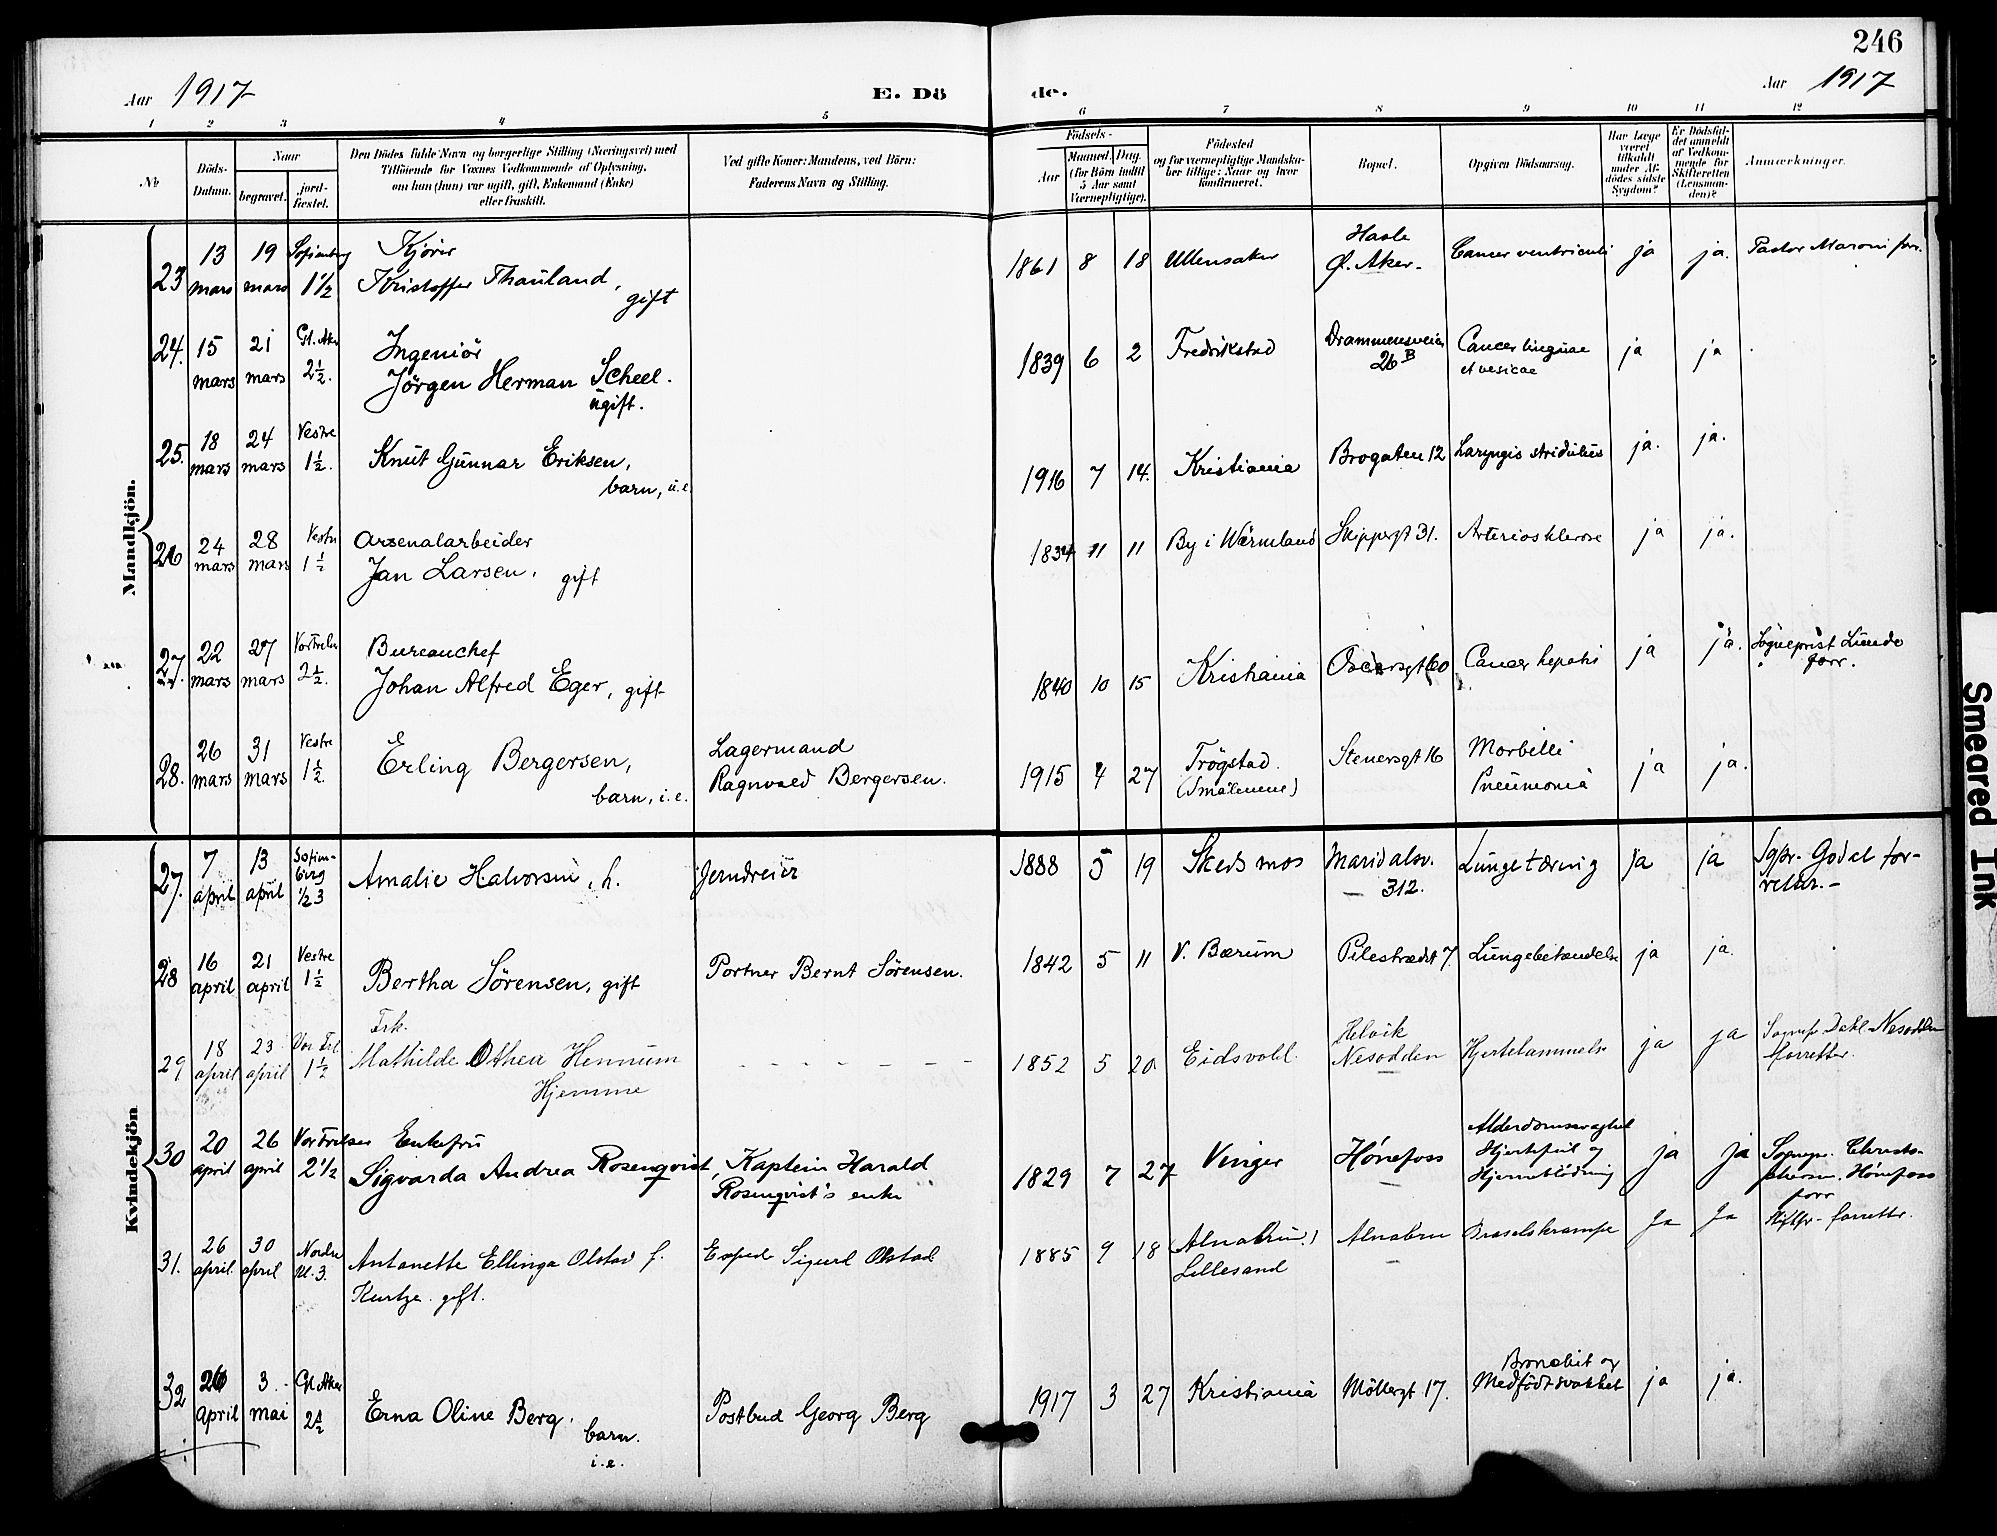 246
Aar 1917
E. Dö
de.
Aar 1917
1 2 3 4 5 6 7 8 9 10 11 12
No
Döds-
Datum.
Naar
begravet.
jord-
fæstet.
Den Dödes fulde Navn og borgerlige Stilling (Næringsvei) med
Tilföiende for Voxnes Vedkommende af Oplysning,
om han (hun) var ugift, gift, Enkemand (Enke)
eller fraskilt.
Ved gifte Koner: Mandens, ved Börn:
Faderens Navn og Stilling.
Födsels-
Aar
Maaned. Dag.
(for Börn indtil
5 Aar samt
Værnepligtige).
Födested
og for værnepligtige Mandska-
ber tillige: Naar og hvor
konfirmeret.
Bopæl.
Opgiven Dödsaarsag.
Har Læge
været
tilkaldt
under Af-
dödes sidste
Sygdom?
Er Dödsfal-
det anmeldt
af Vedkom-
mende for
Skifteretten
(Lensman-
den)?
Anmærkninger.
Mandkjön.
23 13 mars 19 mars Sofienberg 1 1/2
Kristoffer Thauland,
gift
1861 8 18 Ullensaker Hasle
Ø. Aker. Cancer ventriculi ja ja. Pastor Maroni forr.
24. 15 mars 21 mars Gl. Aker 2 1/2.
Ingeniör
Jörgen Herman Scheel.
ugift.
1839 6 2 Fredrikstad Drammensveien
26 B Cancer linguae
et vesicae ja ja
25. 18 mars 24 mars Vestre 1 1/2.
Knut Gunnar Eriksen,
barn, u.e.
1916 7 14. Kristiania Brogaten 12 Laryngis stridulus ja. ja.
26 24 mars 28 mars Vestre 1 1/2
Arsenalarbeider
Jan Larsen, gift
1834 11 11 By i Wärmland Skippergt 31. Arteriosklerose ja ja.
27. 22 mars 27 mars Vor Frelser 2 1/2.
Bureauchef
Johan Alfred Eger, gift
1840 10 15 Kristiania Oscarsgt 60 Cancer hepatis ja ja. Sogneprest Lunde
forr.
28. 26 mars 31 mars Vestre 1 1/2
Erling Bergersen,
barn, i.e.
Lagermand
Ragnvald Bergersen.
1915 4 27 Trögstad.
(Smålenene) Stenersgt 16 Morbilli
Pneumonia ja ja.
Kvindekjön
27. 7 april 13 april Sofien-
berg 1/2 3
Amalie Halvorsen, h. Jerndreier
1888 5 19 Skedsmo Maridalsv.
312. Lungetæring ja ja Sgpr. Godal for-
retter.
28 16 april 21 april Vestre 1 1/2
Bertha Sörensen, gift Portner Bernt Sörensen.
1842 5 11 V. Bærum Pilestrædet 7. Lungebetændelse ja ja.
29 18 april 23 april Vor Frl 1 1/2
Frk.
Mathilde Othea Hennum
Hjemme
1852 5 20 Eidsvold. Helvik
Nesodden Hjertelammelse ja ja Sognepr. Dahl Nesodden
forretter.
30 20 april 26 april Vor Frelser 2 1/2
Enkefru
Sigvarda Andrea Rosenqvist, Kaptein Harald
Rosenqvist's enke
1829 7 27 Vinger Hønefoss Alderdomssvaghet
Hjertefeil og
Hjerneblödning ja ja Sognepr. Christo-
phersen, Hønefoss
forr
31. 26 april 30 april Nordre kl. 3.
Antonette Ellinga Olstad f.
Kurtze. gift. Exped Sigurd Olstad
1885 9 18 (Alnabru!)
Lillesand Alnabru Braselskrampe Ja Ja Stiftpr. forretter.
32 26 april 3 mai Gl Aker 2 1/2
Erna Oline Berg.
barn.
i.e.
Postbud Georg Berg
1917 3 27 Kristiania Möllergt 17. Bronchit og
Medfödt svakhet ja ja.
Smeared Ink